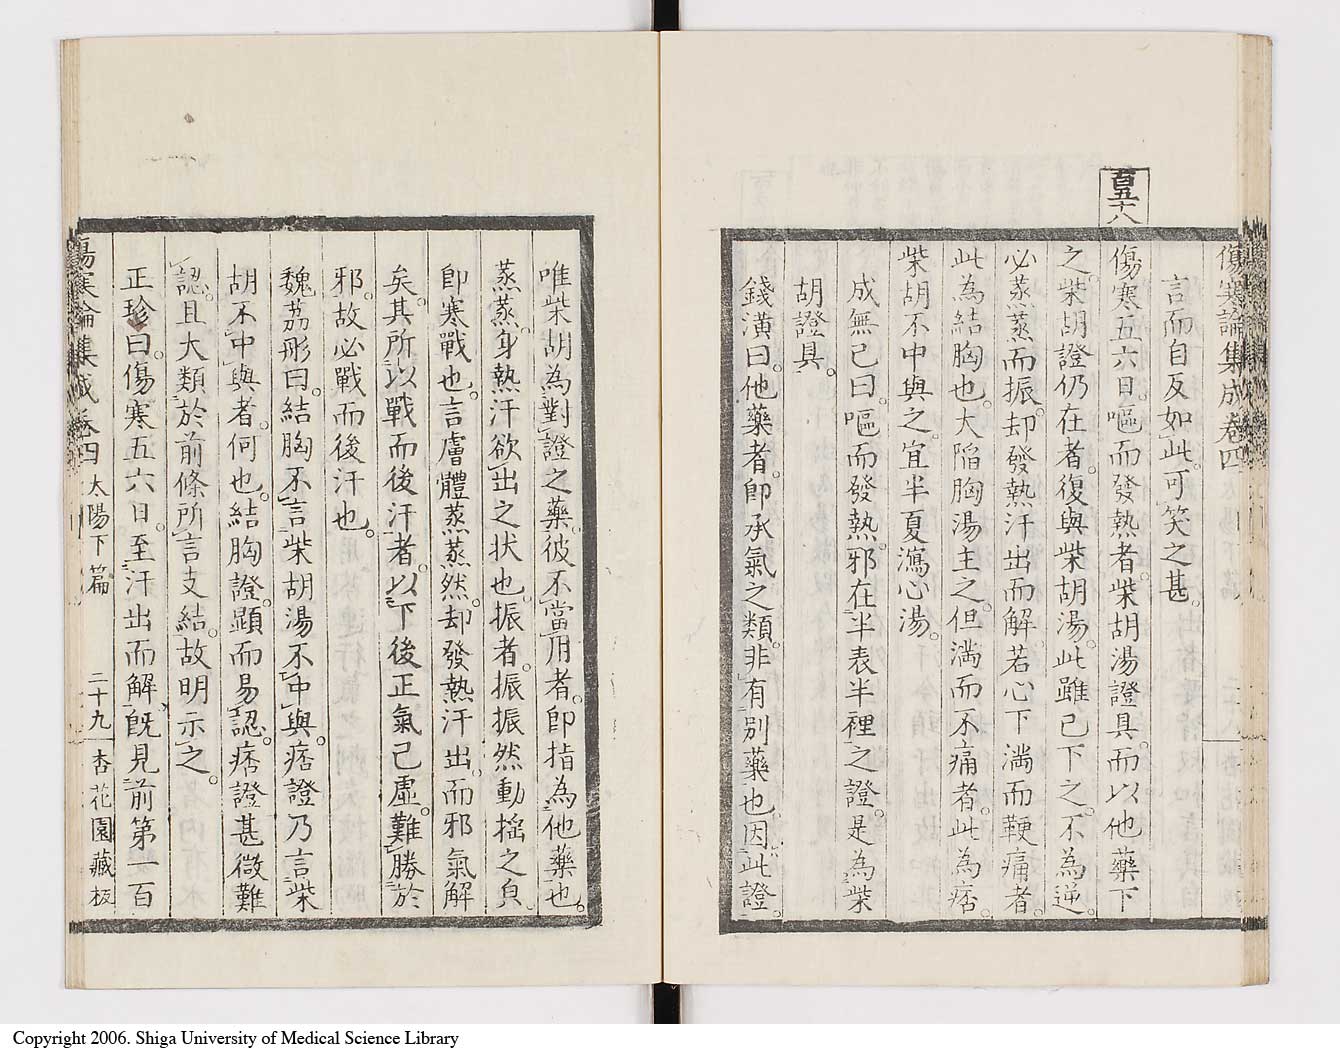 傷寒論集成卷四
言而自反如此。可笑之甚。
百五十八
傷寒五六日。嘔而發熱者。柴胡湯證具。而以他藥下
之。柴胡證仍在者。復與柴胡湯。此雖已下之。不為逆。
必蒸蒸而振。却發熱汗出而解。若心下滿而鞕痛者。
此為結胸也。大陷胸湯主之。但滿而不痛者。此為痞。
柴胡不中與之。宜半夏瀉心湯。
成無己曰。嘔而發熱。邪在半表半裡之證。是為柴
胡證具。
錢潢曰。他藥者。即承氣之類。非有別藥也。因此證。
唯柴胡為對證之藥。彼不當用者。即指為他藥也。
蒸蒸。身熱汗欲出之狀也。振者。振振然動搖之皃。
即寒戰也。言膚體蒸蒸然。却發熱汗出。而邪氣解
矣。其所以戰而後汗者。以下後正氣已虛。難勝於
邪。故必戰而後汗也。
魏荔彤曰。結胸不言柴胡湯不中與。痞證乃言柴
胡不中與者。何也。結胸證。顯而易認。痞證甚微難
認。且大類於前條所言支結。故明示之。
正珍曰。傷寒五六日。至汗出而解。既見前第一百
傷寒論集成卷四 太陽下篇 二十九 杏花園藏板
Copyright 2006. Shiga University of Medical Science Library